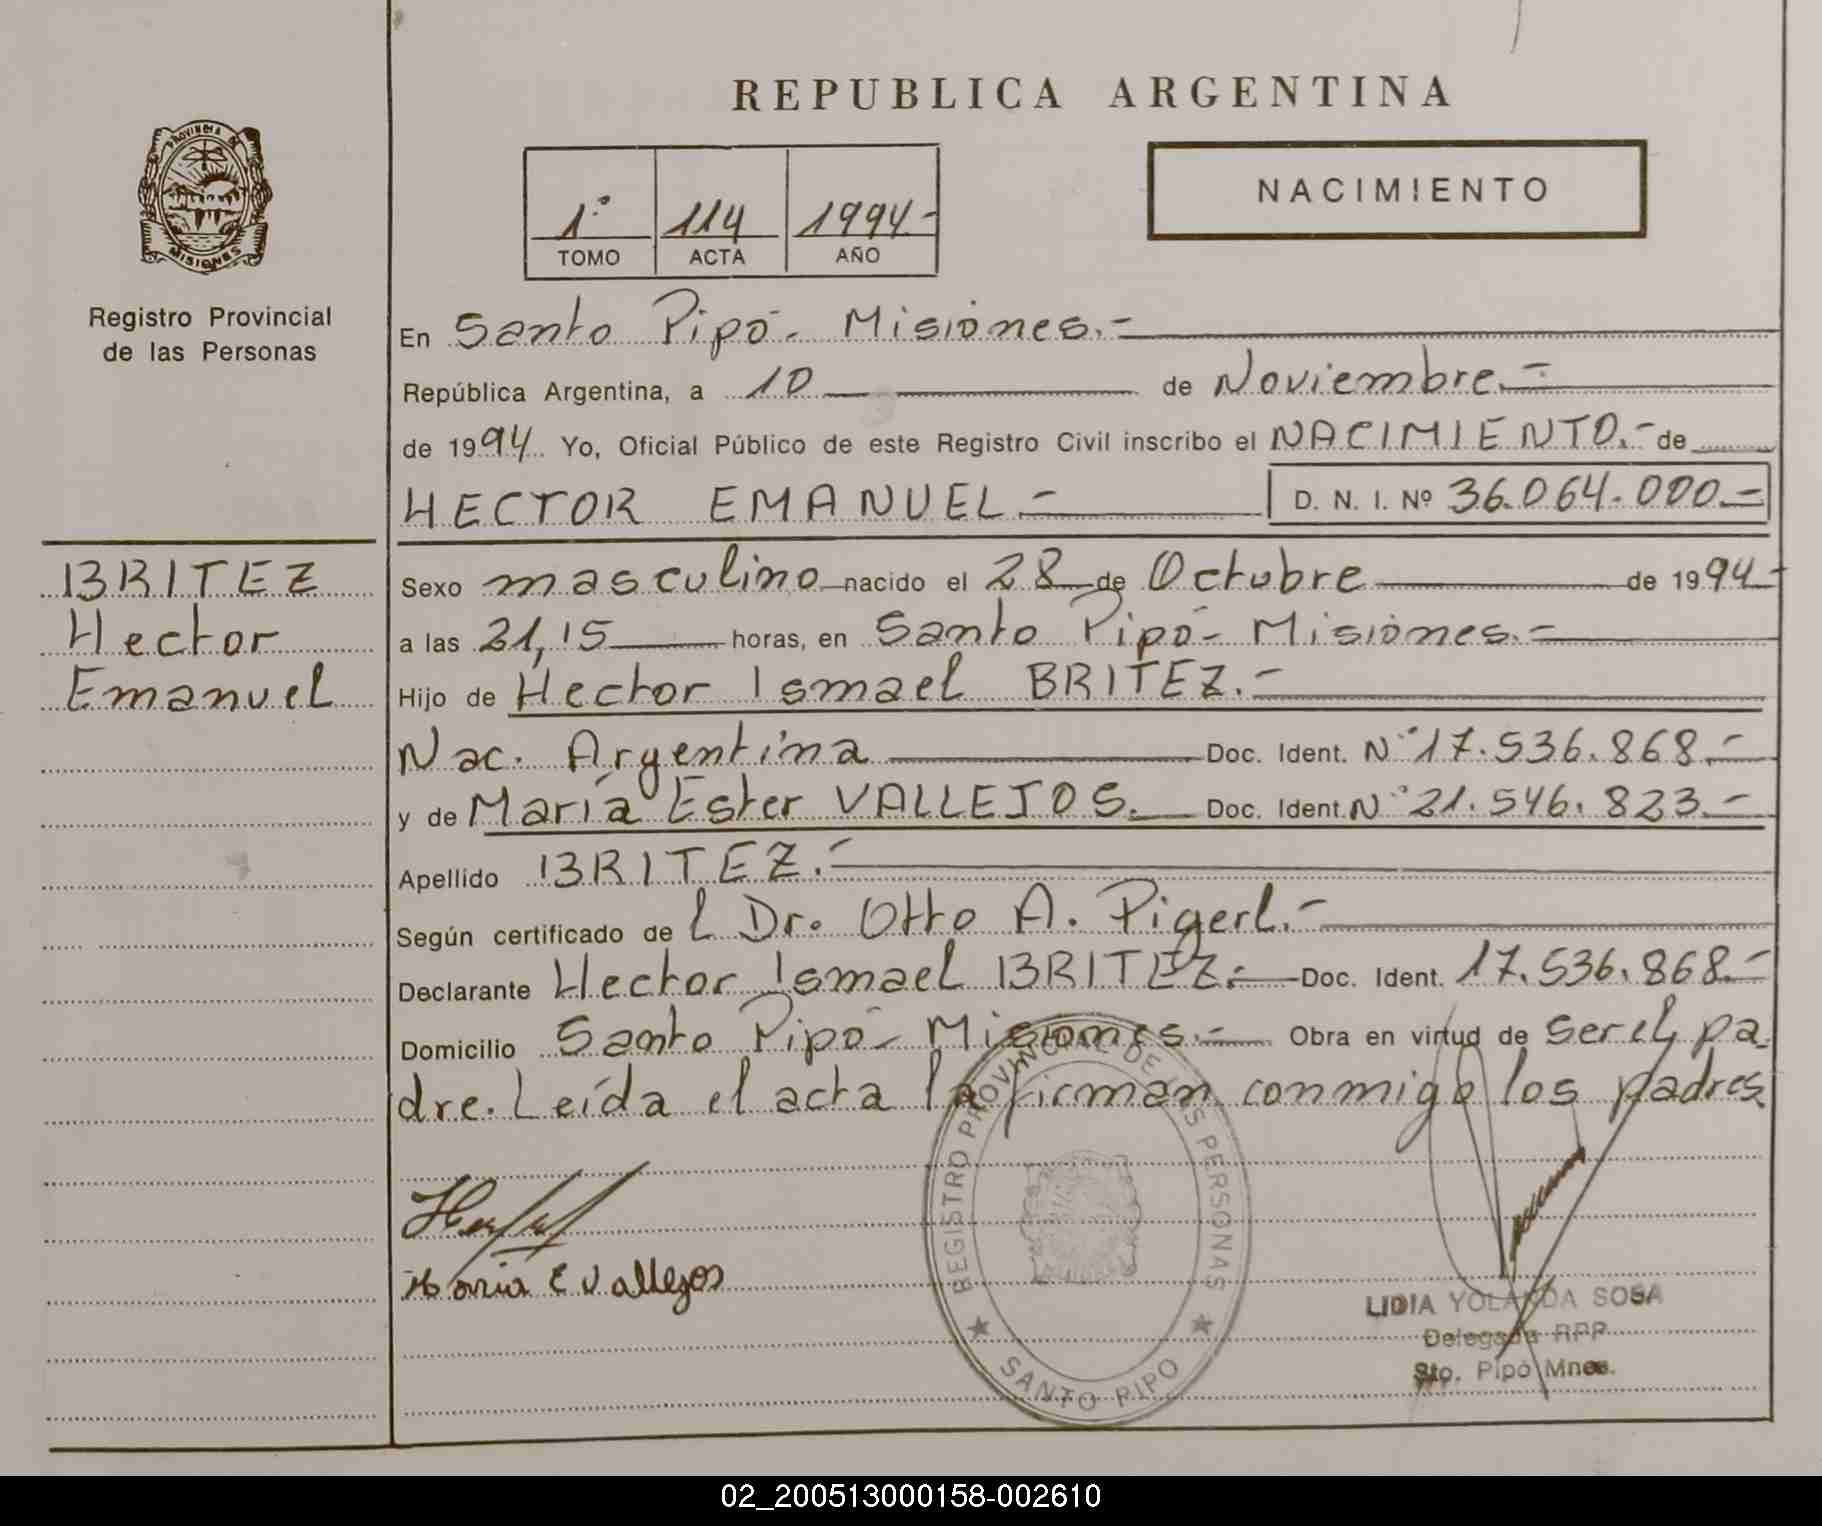 REPUBLICA ARGENTINA
PROVINCIA DE
MISIONES
Registro Provincial
de las Personas
1º 114 1994.-
TOMO ACTA AÑO
NACIMIENTO
En Santo Pipó - Misiones.-
República Argentina, a 10 de Noviembre.-
de 1994. Yo, Oficial Público de este Registro Civil inscribo el NACIMIENTO.- de
HECTOR EMANUEL.- D. N. I. Nº 36.064.000.-
BRITEZ
Hector
Emanuel
Sexo masculino nacido el 28 de Octubre de 1994.-
a las 21,15 horas, en Santo Pipó - Misiones.-
Hijo de Hector Ismael BRITEZ.-
Nac. Argentina Doc. Ident. Nº 17.536.868.-
y de María Ester VALLEJOS. Doc. Ident. Nº 21.546.823.-
Apellido BRITEZ.-
Según certificado de l Dr. Otto A. Pigerl.-
Declarante Hector Ismael BRITEZ.- Doc. Ident. 17.536.868.-
Domicilio Santo Pipó - Misiones.- Obra en virtud de ser el pa-
dre. Leída el acta la firman conmigo los padres.
Maria E Vallejos
REGISTRO PROVINCIAL DE LAS PERSONAS
SANTO PIPO
LIDIA YOLANDA SOSA
Delegada RPP
Sto. Pipó Mnes.
02_200513000158-002610